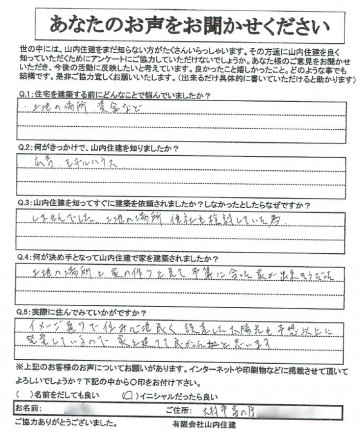 あなたのお声をお聞かせください
世の中には、山内住建をまだ知らない方がたくさんいらっしゃいます。その方達に山内住建を良く
知っていただくためにアンケートにご協力していただけないでしょうか。あなた様のご意見をお聞かせ
いただき、今後の活動に反映したいと考えています。良かったこと嬉しかったこと。どのような事でも
結構です。是非ご協力宜しくお願いいたします。(出来るだけ具体的に書いていただけると助かります)
Q.1:住宅を建築する前にどんなことで悩んでいましたか?
土地の場所 資金など
Q.2:何がきっかけで、山内住建を知りましたか?
広告 モデルハウス
Q.3:山内住建を知ってすぐに建築を依頼されましたか?しなかったとしたらなぜですか?
しませんでした。土地の場所 他社も検討していた為
Q.4:何が決め手となって山内住建で家を建築されましたか?
土地の場所と家の作りを見て予算に合った家が出来そうだった
Q.5:実際に住んでみていかがですか?
イメージ通りで住み心地良く 設置した太陽光も予想以上に
発電しているので 家を建てて良かったと思います
※上記のお客様の声についてお願いがあります。インターネットや印刷物などに掲載させて頂いて
よろしいでしょうか? 下記の中から〇印をお付け下さい。
( )名前をだしても良い (〇)イニシャルだったら良い
お名前: ご住所:
ご協力ありがとうございました。 有限会社山内住建